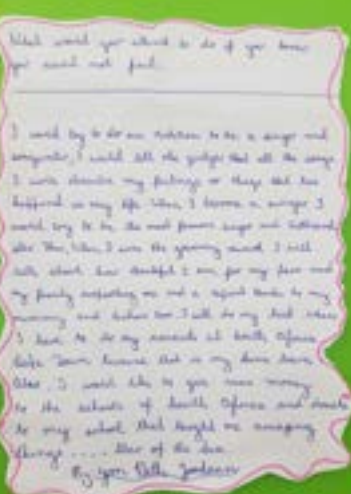 What would you attend to do if you knew
you could not fail.
I would try to do an audition to be a singer and
songwriter, I would tell the judges that all the songs
I wrote describe my feelings or things that has
happened in my life. When I become a singer I
would try to be the most famous singer and
also. When I won the grammy award I will
talk about how thankful I am for my fans and
my family supporting me and a special thanks to my
mommy and I will do my best when
I have to do my concerts at South Africa
Cape Town because that is my home town.
Also, I would like to give more money
to the schools of South Africa and
to my school that taught me amazing
things.... Star of the Sea
By you